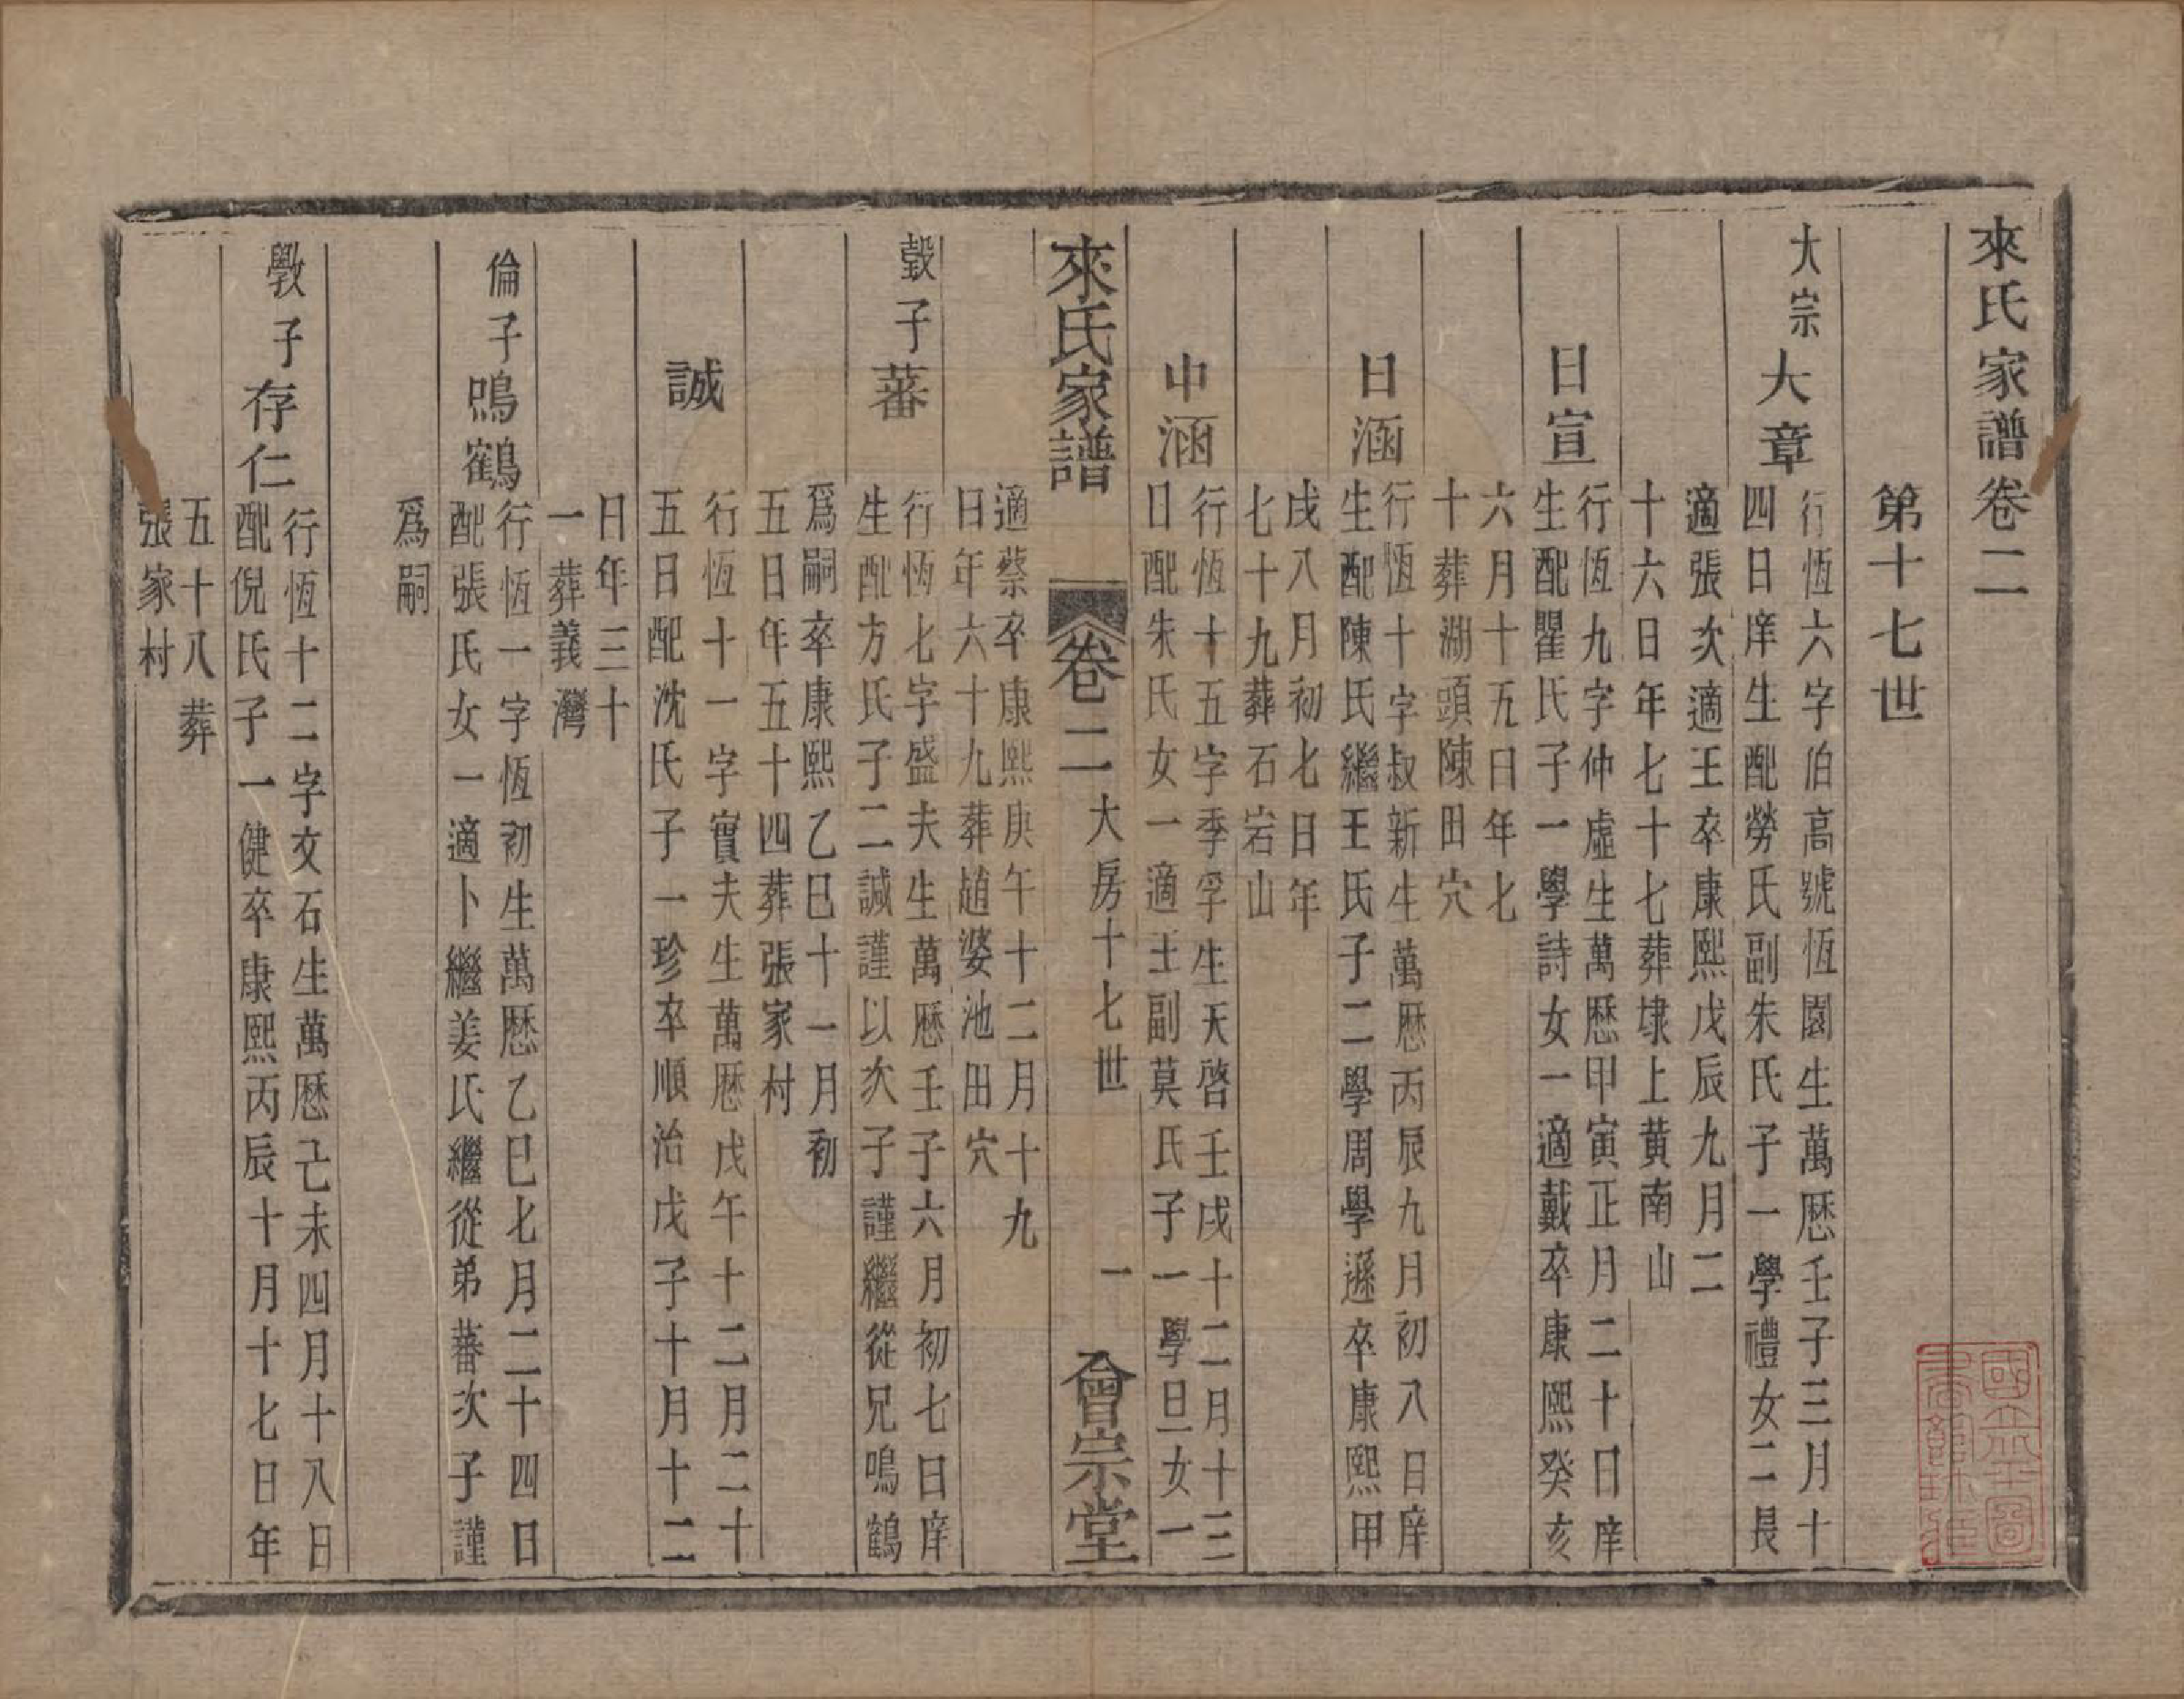 來氏家譜卷二
第十七世
大宗大章
行恆六字伯高號恆園生萬歷壬子三月十
四日庠生配勞氏副朱氏子一學禮女二長
適張次適王卒康熙戊辰九月二
十六日年七十七葬埭上黃南山
日宣
行恆九字仲虛生萬歷甲寅正月二十日庠
生配瞿氏子一學詩女一適戴卒康熙癸亥
六月十五日年七
十葬湖頭陳田穴
日涵
行恆十字叔新生萬歷丙辰九月初八日庠
生配陳氏繼王氏子二學周學遜卒康熙甲
戌八月初七日年
七十九葬石岩山
中涵
行恆十五字季孚生天啓壬戌十二月十三
日配朱氏女一適王副莫氏子一學旦女一
來氏家譜 卷二 大房十七世 一 會宗堂
適蔡卒康熙庚午十二月十九
日年六十九葬趙婆池田穴
瑴子蕃
行恆七字盛夫生萬歷壬子六月初七日庠
生配方氏子二誠謹以次子謹繼從兄鳴鶴
爲嗣卒康熙乙巳十一月初
五日年五十四葬張家村
誠
行恆十一字實夫生萬歷戊午十二月二十
五日配沈氏子一珍卒順治戊子十月十二
日年三十
一葬義灣
倫子鳴鶴
行恆一字恆初生萬歷乙巳七月二十四日
配張氏女一適卜繼姜氏繼從弟蕃次子謹
爲嗣
斆子存仁
行恆十二字文石生萬歷己未四月十八日
配倪氏子一健卒康熙丙辰十月十七日年
五十八葬
張家村